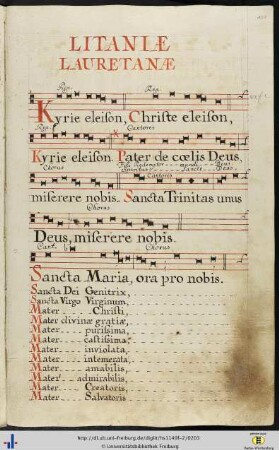 LITANIÆ
LAURETANÆ
Kyrie eleison, Christe eleison,
Cantores
Kyrie eleison. Pater de cœlis Deus,
Chorus
Fili Redemptor mundi Deus
Spiritus Sancte Deus
Cantores
miserere nobis. Sancta Trinitas unus
Chorus
Deus, miserere nobis.
Cant.
Chorus
Sancta Maria, ora pro nobis.
Sancta Dei Genitrix,
Sancta Virgo Virginum,
Mater Christi,
Mater divinæ gratiæ,
Mater purissima,
Mater castissima,
Mater inviolata,
Mater intemerata,
Mater amabilis,
Mater admirabilis,
Mater Creatoris,
Mater Salvatoris
© Universitätsbibliothek Freiburg